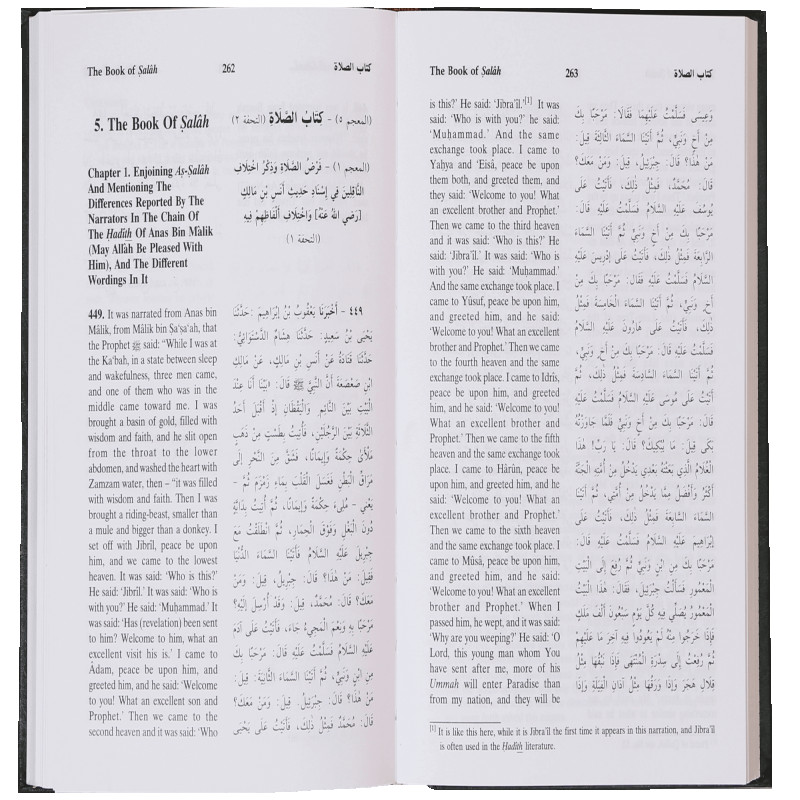 The Book of Ṣalâh
262
كتاب الصلاة
5. The Book Of Ṣalâh
(المعجم ٥) - كِتَابُ الصَّلَاةِ (التحفة ٢)
Chapter 1. Enjoining Aṣ-Ṣalâh
And Mentioning The
Differences Reported By The
Narrators In The Chain Of
The Hadîth Of Anas Bin Mâlik
(May Allâh Be Pleased With
Him), And The Different
Wordings In It
(المعجم ١) - فَرْضُ الصَّلَاةِ وَذِكْرُ اخْتِلَافِ
النَّاقِلِينَ فِي إِسْنَادِ حَدِيثِ أَنَسِ بْنِ مَالِكٍ
[رَضِيَ اللهُ عَنْهُ] وَاخْتِلَافُ أَلْفَاظِهِمْ فِيهِ
(التحفة ١)
449. It was narrated from Anas bin
Mâlik, from Mâlik bin Ṣa'ṣa'ah, that
the Prophet ﷺ said: “While I was at
the Ka'bah, in a state between sleep
and wakefulness, three men came,
and one of them who was in the
middle came toward me. I was
brought a basin of gold, filled with
wisdom and faith, and he slit open
from the throat to the lower
abdomen, and washed the heart with
Zamzam water, then – “it was filled
with wisdom and faith. Then I was
brought a riding-beast, smaller than
a mule and bigger than a donkey. I
set off with Jibrîl, peace be upon
him, and we came to the lowest
heaven. It was said: ‘Who is this?’
He said: ‘Jibrîl.’ It was said: ‘Who is
with you?’ He said: ‘Muḥammad.’ It
was said: ‘Has (revelation) been sent
to him? Welcome to him, what an
excellent visit his is.’ I came to
Âdam, peace be upon him, and
greeted him, and he said: ‘Welcome
to you! What an excellent son and
Prophet.’ Then we came to the
second heaven and it was said: ‘Who
٤٤٩ - أَخْبَرَنَا يَعْقُوبُ بْنُ إِبْرَاهِيمَ: حَدَّثَنَا
يَحْيَى بْنُ سَعِيدٍ: حَدَّثَنَا هِشَامٌ الدَّسْتَوَائِيُّ:
حَدَّثَنَا قَتَادَةُ عَنْ أَنَسِ بْنِ مَالِكٍ، عَنْ مَالِكِ
ابْنِ صَعْصَعَةَ أَنَّ النَّبِيَّ ﷺ قَالَ: «بَيْنَا أَنَا عِنْدَ
الْبَيْتِ بَيْنَ النَّائِمِ وَالْيَقْظَانِ إِذْ أَقْبَلَ أَحَدُ
الثَّلَاثَةِ بَيْنَ الرَّجُلَيْنِ، فَأُتِيتُ بِطَسْتٍ مِنْ ذَهَبٍ
مَلْآنَ حِكْمَةً وَإِيمَانًا، فَشَقَّ مِنَ النَّحْرِ إِلَى
مَرَاقِّ الْبَطْنِ فَغَسَلَ الْقَلْبَ بِمَاءِ زَمْزَمَ ثُمَّ -
يَعْنِي - مُلِىءَ حِكْمَةً وَإِيمَانًا، ثُمَّ أُتِيتُ بِدَابَّةٍ
دُونَ الْبَغْلِ وَفَوْقَ الْحِمَارِ، ثُمَّ انْطَلَقْتُ مَعَ
جِبْرِيلَ عَلَيْهِ السَّلَامُ فَأَتَيْنَا السَّمَاءَ الدُّنْيَا
فَقِيلَ: مَنْ هَذَا؟ قَالَ: جِبْرِيلُ، قِيلَ: وَمَنْ
مَعَكَ؟ قَالَ: مُحَمَّدٌ، قِيلَ: وَقَدْ أُرْسِلَ إِلَيْهِ؟
مَرْحَبًا بِهِ وَنِعْمَ الْمَجِيءُ جَاءَ، فَأَتَيْتُ عَلَى آدَمَ
عَلَيْهِ السَّلَامُ فَسَلَّمْتُ عَلَيْهِ قَالَ: مَرْحَبًا بِكَ
مِنِ ابْنٍ وَنَبِيٍّ، ثُمَّ أَتَيْنَا السَّمَاءَ الثَّانِيَةَ: قِيلَ:
مَنْ هَذَا؟ قَالَ: جِبْرِيلُ. قِيلَ: وَمَنْ مَعَكَ؟
قَالَ: مُحَمَّدٌ فَمِثْلُ ذَلِكَ، فَأَتَيْتُ عَلَى يَحْيَى
The Book of Ṣalâh
263
كتاب الصلاة
is this?’ He said: ‘Jibra'îl.’[1] It was
said: ‘Who is with you?’ he said:
‘Muḥammad.’ And the same
exchange took place. I came to
Yaḥya and ‘Eisâ, peace be upon
them both, and greeted them, and
they said: ‘Welcome to you! What
an excellent brother and Prophet.’
Then we came to the third heaven
and it was said: ‘Who is this?’ He
said: ‘Jibra'îl.’ It was said: ‘Who is
with you?’ He said: ‘Muḥammad.’
And the same exchange took place. I
came to Yûsuf, peace be upon him,
and greeted him, and he said:
‘Welcome to you! What an excellent
brother and Prophet.’ Then we came
to the fourth heaven and the same
exchange took place. I came to Idrîs,
peace be upon him, and greeted
him, and he said: ‘Welcome to you!
What an excellent brother and
Prophet.’ Then we came to the fifth
heaven and the same exchange took
place. I came to Hârûn, peace be
upon him, and greeted him, and he
said: ‘Welcome to you! What an
excellent brother and Prophet.’
Then we came to the sixth heaven
and the same exchange took place. I
came to Mûsâ, peace be upon him,
and greeted him, and he said:
‘Welcome to you! What an excellent
brother and Prophet.’ When I
passed him, he wept, and it was said:
‘Why are you weeping?’ He said: ‘O
Lord, this young man whom You
have sent after me, more of his
Ummah will enter Paradise than
from my nation, and they will be
وَعِيسَى فَسَلَّمْتُ عَلَيْهِمَا فَقَالَا: مَرْحَبًا بِكَ
مِنْ أَخٍ وَنَبِيٍّ، ثُمَّ أَتَيْنَا السَّمَاءَ الثَّالِثَةَ قِيلَ:
مَنْ هَذَا؟ قَالَ: جِبْرَئِيلُ، قِيلَ: وَمَنْ مَعَكَ؟
قَالَ: مُحَمَّدٌ، فَمِثْلُ ذَلِكَ، فَأَتَيْتُ عَلَى
يُوسُفَ عَلَيْهِ السَّلَامُ فَسَلَّمْتُ عَلَيْهِ قَالَ:
مَرْحَبًا بِكَ مِنْ أَخٍ وَنَبِيٍّ ثُمَّ أَتَيْنَا السَّمَاءَ
الرَّابِعَةَ فَمِثْلُ ذَلِكَ، فَأَتَيْتُ عَلَى إِدْرِيسَ عَلَيْهِ
السَّلَامُ فَسَلَّمْتُ عَلَيْهِ فَقَالَ: مَرْحَبًا بِكَ مِنْ
أَخٍ وَنَبِيٍّ، ثُمَّ أَتَيْنَا السَّمَاءَ الْخَامِسَةَ فَمِثْلُ
ذَلِكَ، فَأَتَيْتُ عَلَى هَارُونَ عَلَيْهِ السَّلَامُ
فَسَلَّمْتُ عَلَيْهِ قَالَ: مَرْحَبًا بِكَ مِنْ أَخٍ وَنَبِيٍّ،
ثُمَّ أَتَيْنَا السَّمَاءَ السَّادِسَةَ فَمِثْلُ ذَلِكَ، ثُمَّ
أَتَيْتُ عَلَى مُوسَى عَلَيْهِ السَّلَامُ فَسَلَّمْتُ عَلَيْهِ
قَالَ: مَرْحَبًا بِكَ مِنْ أَخٍ وَنَبِيٍّ فَلَمَّا جَاوَزْتُهُ
بَكَى قِيلَ: مَا يُبْكِيكَ؟ قَالَ: يَا رَبِّ! هَذَا
الْغُلَامُ الَّذِي بَعَثْتَهُ بَعْدِي يَدْخُلُ مِنْ أُمَّتِهِ الْجَنَّةَ
أَكْثَرُ وَأَفْضَلُ مِمَّا يَدْخُلُ مِنْ أُمَّتِي، ثُمَّ أَتَيْنَا
السَّمَاءَ السَّابِعَةَ فَمِثْلُ ذَلِكَ، فَأَتَيْتُ عَلَى
إِبْرَاهِيمَ عَلَيْهِ السَّلَامُ فَسَلَّمْتُ عَلَيْهِ قَالَ:
مَرْحَبًا بِكَ مِنِ ابْنٍ وَنَبِيٍّ ثُمَّ رُفِعَ إِلَى الْبَيْتِ
الْمَعْمُورِ فَسَأَلْتُ جِبْرَئِيلَ، فَقَالَ: هَذَا الْبَيْتُ
الْمَعْمُورُ يُصَلِّي فِيهِ كُلَّ يَوْمٍ سَبْعُونَ أَلْفَ مَلَكٍ
فَإِذَا خَرَجُوا مِنْهُ لَمْ يَعُودُوا فِيهِ آخِرَ مَا عَلَيْهِمْ
ثُمَّ رُفِعْتُ إِلَى سِدْرَةِ الْمُنْتَهَى فَإِذَا نَبْقُهَا مِثْلُ
قِلَالِ هَجَرَ وَإِذَا وَرَقُهَا مِثْلُ آذَانِ الْفِيَلَةِ وَإِذَا
[1] It is like this here, while it is Jibra'îl the first time it appears in this narration, and Jibra'îl
is often used in the Hadîth literature.